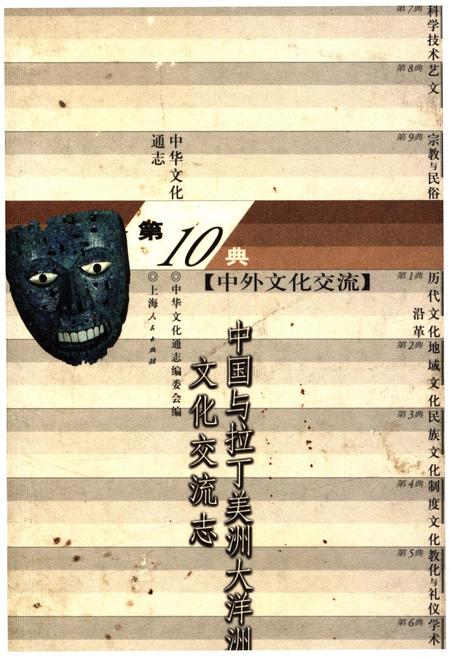 第7典
科学技术
艺文
第8典
第9典
宗教与民俗
中华文化
通志
第
10
典
【中外文化交流】
◎中华文化通志编委会编
◎上海人民出版社
中国与拉丁美洲大洋洲
文化交流志
第1典
历代文化
沿革
第2典
地域文化
第3典
民族文化
第4典
制度文化
第5典
教化与礼仪
第6典
学术